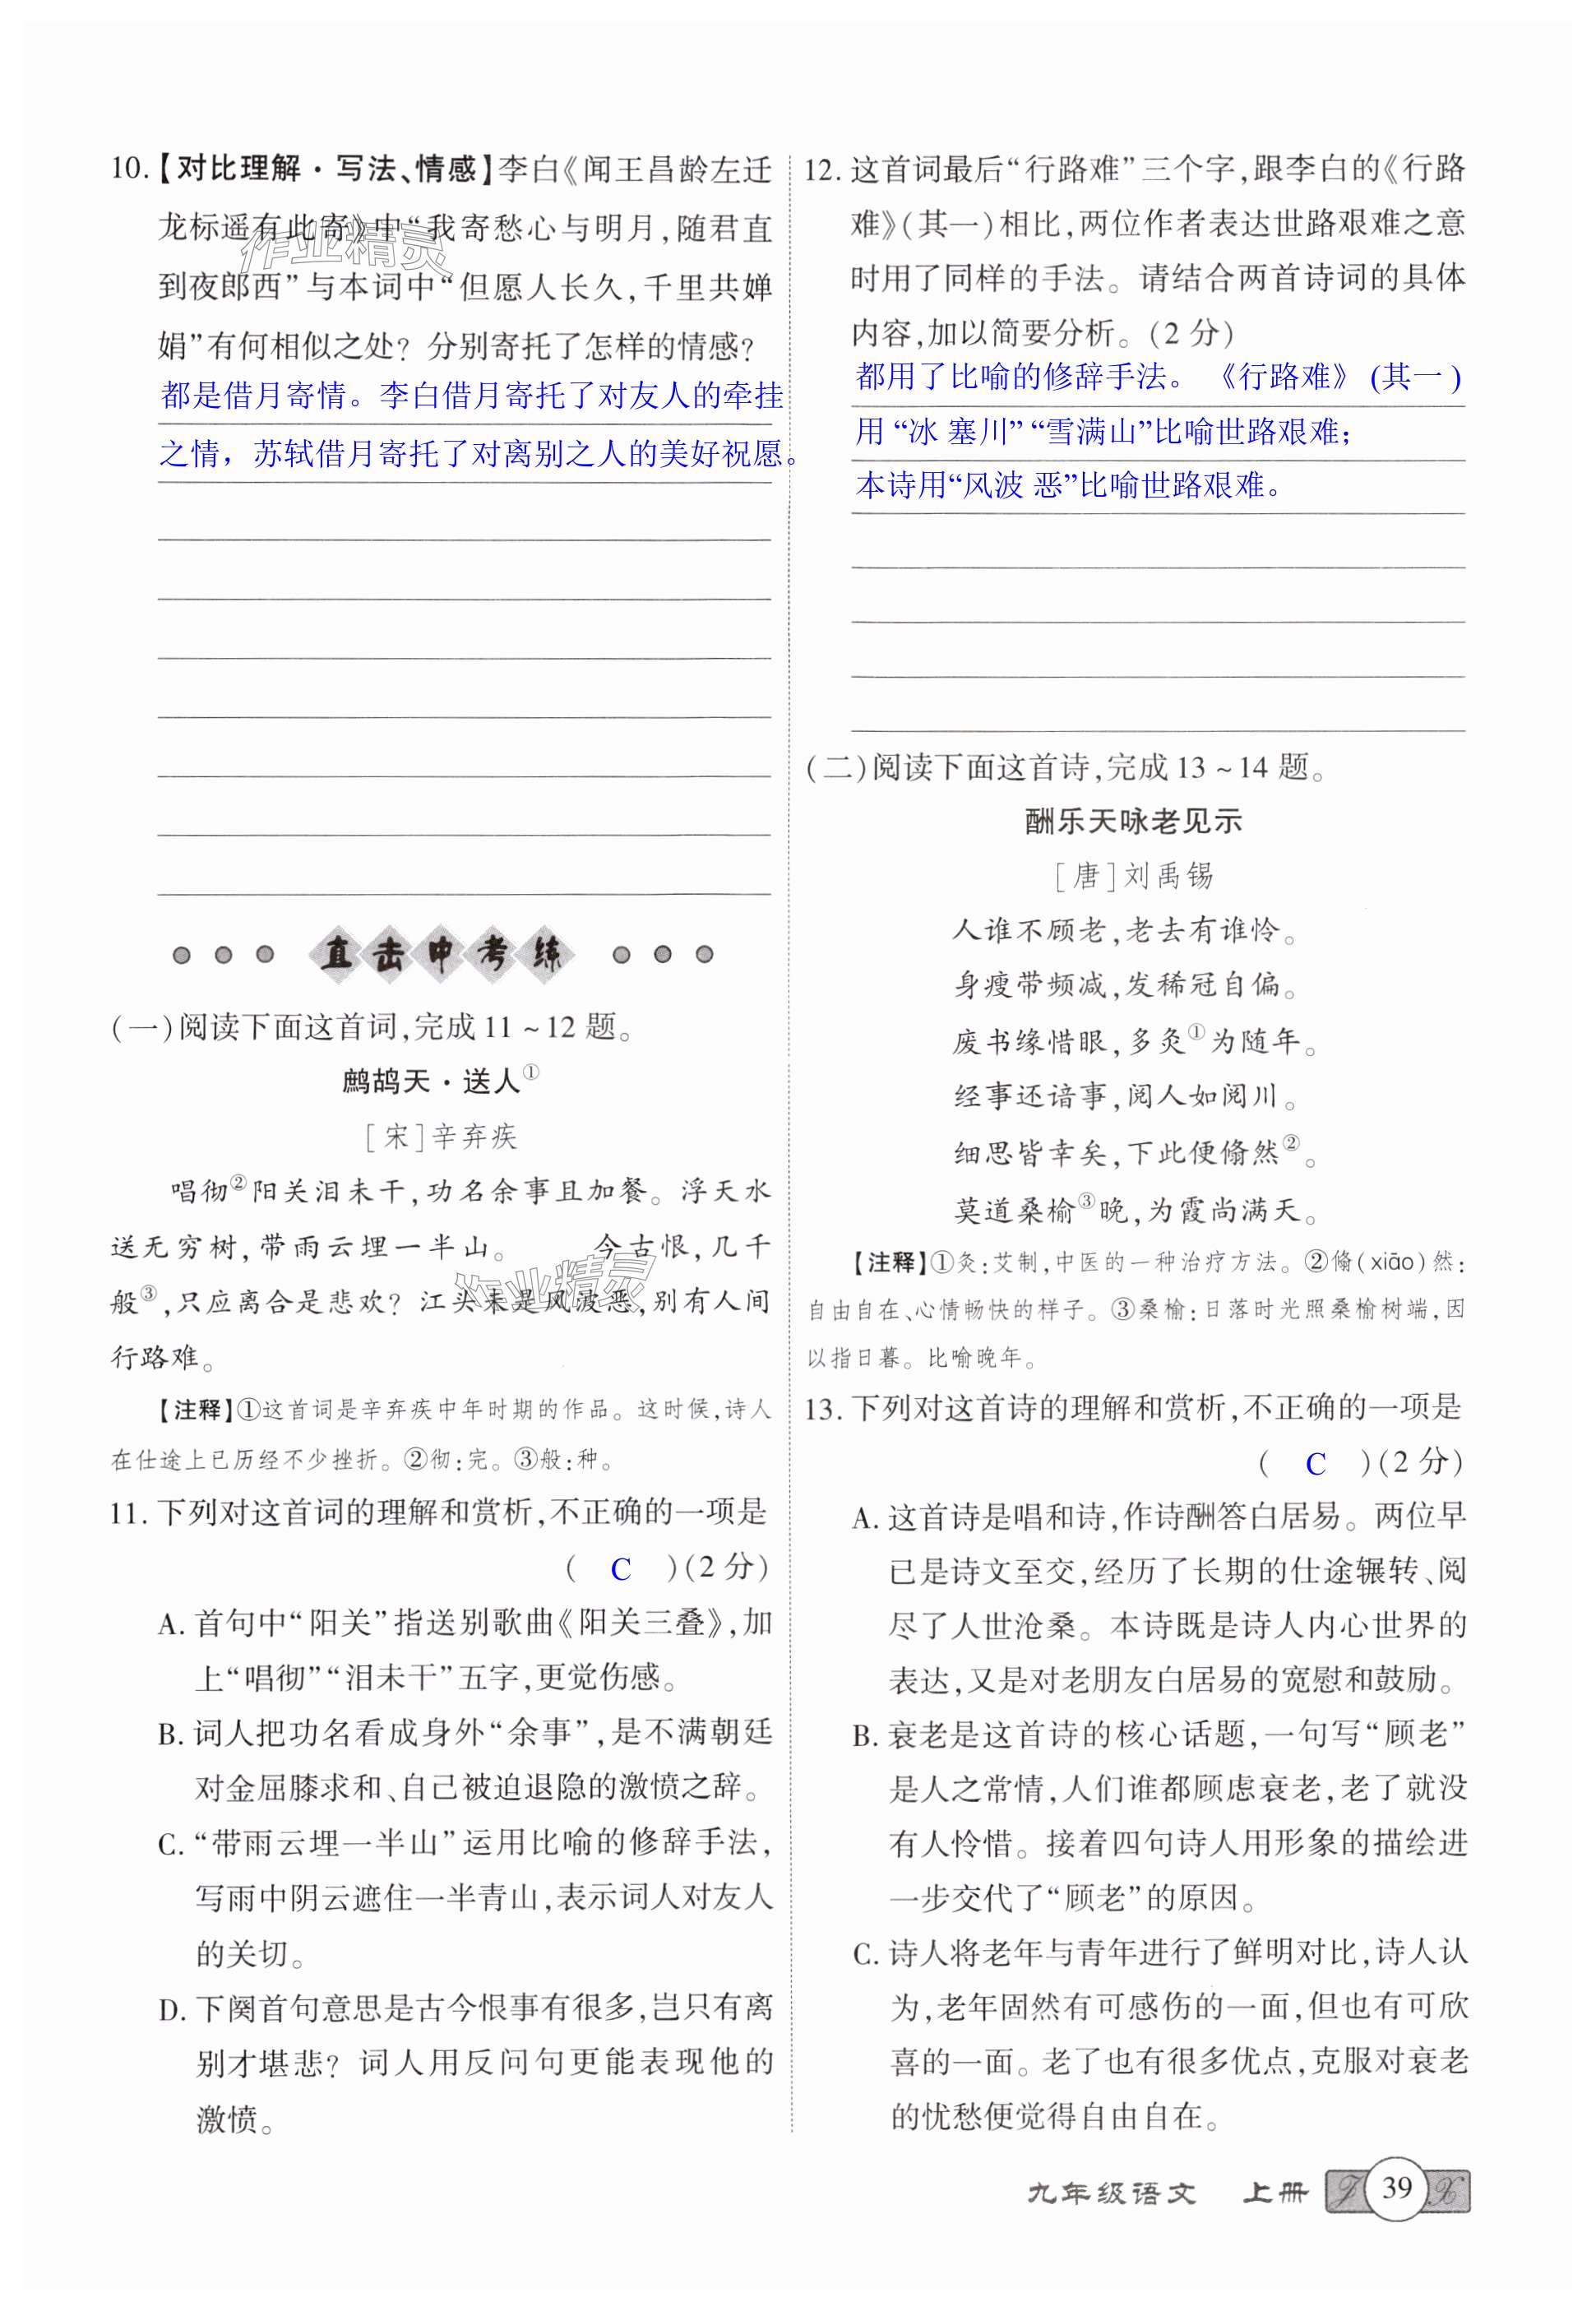 10.【对比理解·写法、情感】李白《闻王昌龄左迁
龙标遥有此寄》中“我寄愁心与明月，随君直
到夜郎西”与本词中“但愿人长久，千里共婵
娟”有何相似之处？分别寄托了怎样的情感？
都是借月寄情。李白借月寄托了对友人的牵挂
之情，苏轼借月寄托了对离别之人的美好祝愿。
直击中考练
(一)阅读下面这首词，完成11~12题。
鹧鸪天·送人①
[宋]辛弃疾
唱彻②阳关泪未干，功名余事且加餐。浮天水
送无穷树，带雨云埋一半山。 今古恨，几千
般③，只应离合是悲欢？江头未是风波恶，别有人间
行路难。
【注释】①这首词是辛弃疾中年时期的作品。这时候，诗人
在仕途上已历经不少挫折。②彻：完。③般：种。
11.下列对这首词的理解和赏析，不正确的一项是
( C )(2分)
A.首句中“阳关”指送别歌曲《阳关三叠》，加
上“唱彻”“泪未干”五字，更觉伤感。
B.词人把功名看成身外“余事”，是不满朝廷
对金屈膝求和、自己被迫退隐的激愤之辞。
C.“带雨云埋一半山”运用比喻的修辞手法，
写雨中阴云遮住一半青山，表示词人对友人
的关切。
D.下阕首句意思是古今恨事有很多，岂只有离
别才堪悲？词人用反问句更能表现他的
激愤。
12.这首词最后“行路难”三个字，跟李白的《行路
难》(其一)相比，两位作者表达世路艰难之意
时用了同样的手法。请结合两首诗词的具体
内容，加以简要分析。(2分)
都用了比喻的修辞手法。《行路难》(其一 )
用 “冰 塞川” “雪满山”比喻世路艰难；
本诗用“风波 恶”比喻世路艰难。
(二)阅读下面这首诗，完成13~14题。
酬乐天咏老见示
[唐]刘禹锡
人谁不顾老，老去有谁怜。
身瘦带频减，发稀冠自偏。
废书缘惜眼，多灸①为随年。
经事还谙事，阅人如阅川。
细思皆幸矣，下此便翛然②。
莫道桑榆③晚，为霞尚满天。
【注释】①灸：艾制，中医的一种治疗方法。②翛(xiāo)然：
自由自在、心情畅快的样子。③桑榆：日落时光照桑榆树端，因
以指日暮。比喻晚年。
13.下列对这首诗的理解和赏析，不正确的一项是
( C )(2分)
A.这首诗是唱和诗，作诗酬答白居易。两位早
已是诗文至交，经历了长期的仕途辗转、阅
尽了人世沧桑。本诗既是诗人内心世界的
表达，又是对老朋友白居易的宽慰和鼓励。
B.衰老是这首诗的核心话题，一句写“顾老”
是人之常情，人们谁都顾虑衰老，老了就没
有人怜惜。接着四句诗人用形象的描绘进
一步交代了“顾老”的原因。
C.诗人将老年与青年进行了鲜明对比，诗人认
为，老年固然有可感伤的一面，但也有可欣
喜的一面。老了也有很多优点，克服对衰老
的忧愁便觉得自由自在。
九年级语文 上册 J 39 X
作业精灵
作业精灵